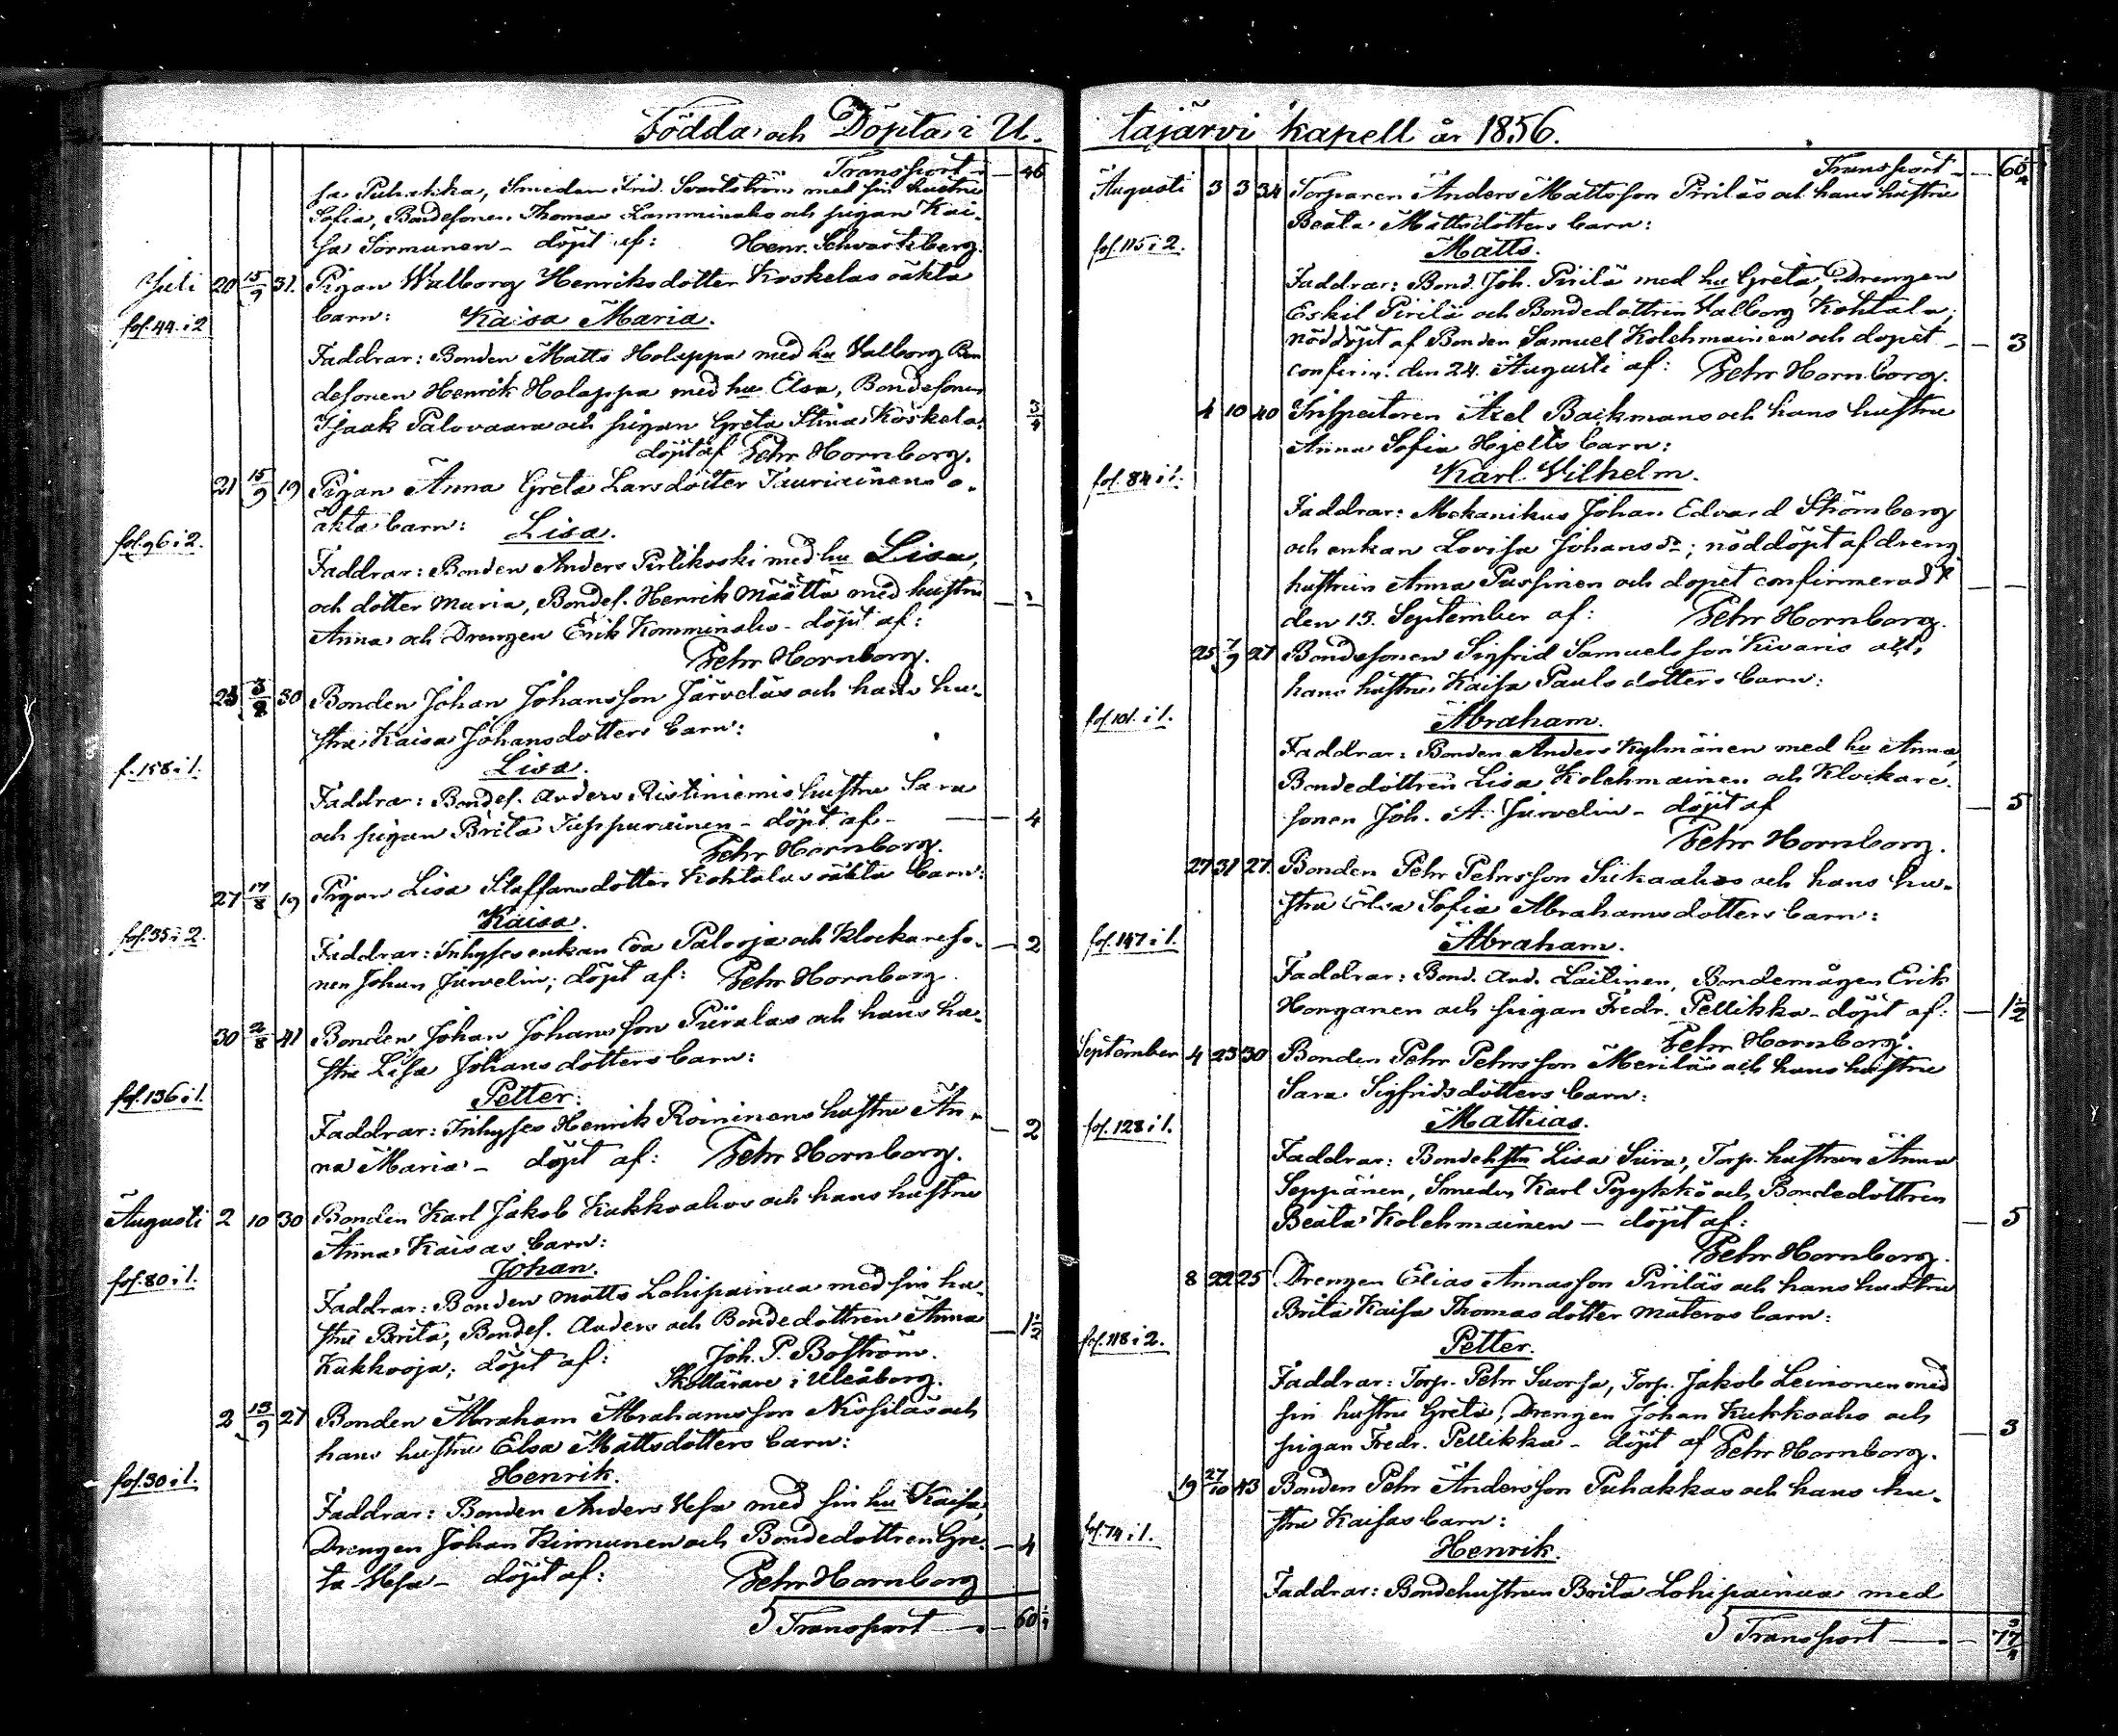 Födda och Döpta i U-
Transport - 46
sa Puhakka, Smeden Frid. Svartström med sin hustru
Sofia, Bondesonen Thomas Lamminaho och pigan Kai-
sa Sormunen - döpt af: Henr. Schwartzberg.
Juli 20 15/9 31. Pigan Walborg Henriksdotter Koskelas oäkta
fol. 44. i 2 barn: Kaisa Maria.
Faddrar: Bonden Matts Holappa med hu Valborg Bon
desonen Henrik Holappa med hu Elsa, Bondesonen
Isaak Palovaara och pigan Greta Stina Koskela: 3/4
döpt af Pehr Hornborg.
21 15/9 19 Pigan Anna Greta Larsdotter Tauriainens o-
äkta barn: Lisa.
fol. 96 i 2.
Faddrar: Bonden Anders Pirlikoski med hu Lisa,
och dotter Maria, Bondes. Henrik Määttä med hustru
Anna och Drengen Erik Komminaho - döpt af:
Pehr Hornborg.
23 3/8 30 Bonden Johan Johansson Järveläs och hans hu-
stru Kaisa Johansdotters barn:
f. 158 i 1. Lisa.
Faddrar: Bondes. Anders Ristiniemis hustru Sara
och pigan Brita Tuppurainen - döpt af - 4
Pehr Hornborg.
27 17/8 19 Pigan Lisa Staffansdotter Kohtalas oäkta barn:
fol. 35 i 2. Kaisa.
Faddrar: Inhyses enkan Eva Palooja och Klockareso- 2
nen Johan Jurvelin; döpt af: Pehr Hornborg
30 2/8 41 Bonden Johan Johansson Piiralas och hans hu-
stru Lisa Johansdotters barn:
fol. 136 i 1. Petter.
Faddrar: Inhyses Henrik Roininens hustru An- 2
na Maria - döpt af: Pehr Hornborg.
Augusti 2 10 30 Bonden Karl Jakob Kukkoahos och hans hustru
Anna Kaisas barn:
fol. 80 i 1. Johan.
Faddrar: Bonden Matts Lohipainua med sin hu-
stru Brita, Bondes. Anders och Bondedottren Anna 1 1/2
Kukkooja; döpt af: Joh. P. Boström.
Skollärare i Uleåborg.
2 13/9 27 Bonden Abraham Abrahamsson Niosiläs och
hans hustru Elsa Mattsdotters barn:
fol. 30 i 1. Henrik.
Faddrar: Bonden Anders Vesa med sin hu Kaisa,
Drengen Johan Kinnunen och Bondedottren Gre- 4
ta Vesa - döpt af: Pehr Hornborg
Transport - 60 1/4
tajärvi kapell år 1856.
Transport - 60 1/4
Augusti 3 3 34 Torparen Anders Mattsson Piriläs och hans hustru
Beata Mattsdotters barn:
fol. 115 i 2. Matts.
Faddrar: Bond. Joh. Pirilä med hu Greta, Drengen
Eskil Pirilä och Bondedottren Valborg Kohtala;
nöddöpt af Bonden Samuel Kolehmainen och dopet - 3
confirm. den 24. Augusti af: Pehr Hornborg.
4 10 40 Inspectoren Axel Backmans och hans hustru
Anna Sofia Hjelts barn:
fol. 84 i 1. Karl Vilhelm.
Faddrar: Mekanikus Johan Edvard Strömberg
och enkan Lovisa Johansdr; nöddöpt af dreng
hustrun Anna Pussinen och dopet confirmeradt
den 13. September af: Pehr Hornborg.
25 7/9 27 Bondesonen Sigfrid Samuelsson Kivaris och
hans hustru Kaisa Paulsdotters barn:
fol. 101. i 1. Abraham.
Faddrar: Bonden Anders Kylmänen med hu Anna,
Bondedottren Lisa Kolehmainen och Klockare-
sonen Joh. A. Jurvelin - döpt af 5
Pehr Hornborg.
27 31 27. Bonden Pehr Pehrsson Siikaahos och hans hu-
stru Elsa Sofia Abrahamsdotters barn:
fol. 147 i 1. Abraham.
Faddrar: Bond. And. Laitinen, Bondemågen Erik
Honganen och pigan Fredr. Pellikka - döpt af: 1 1/2
Pehr Hornborg.
September 4 23 30 Bonden Pehr Pehrsson Meriläs och hans hustru
Sara Sigfridsdotters barn:
fol. 128 i 1. Mathias.
Faddrar: Bondehstn Lisa Siira, Torp. hustrun Anna
Seppänen, Smeden Karl Pyykkö och Bondedottren
Beata Kolehmainen - döpt af: 5
Pehr Hornborg.
8 22 25 Drengen Elias Annasson Piriläs och hans hustru
Brita Kaisa Thomasdotter Materos barn:
fol. 118 i 2. Petter.
Faddrar: Torp. Pehr Suorsa, Torp. Jakob Leinonen med
sin hustru Greta, Drengen Johan Kukkoaho och
pigan Fredr. Pellikka - döpt af Pehr Hornborg. 3
19 27/10 43 Bonden Pehr Andersson Puhakkas och hans hu-
stru Kaisas barn:
fol. 74 i 1. Henrik.
Faddrar: Bondehustrun Brita Lohipainua med
Transport - 77 3/4